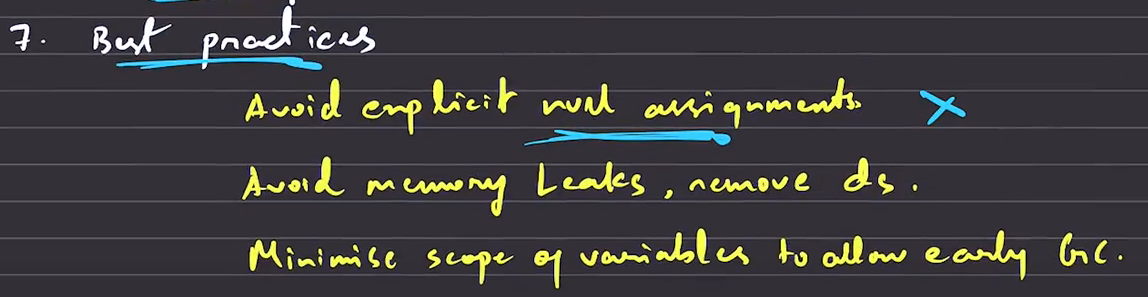 7. Best practices
Avoid explicit null assignments.
Avoid memory Leaks, remove ds.
Minimise scope of variables to allow early GC.